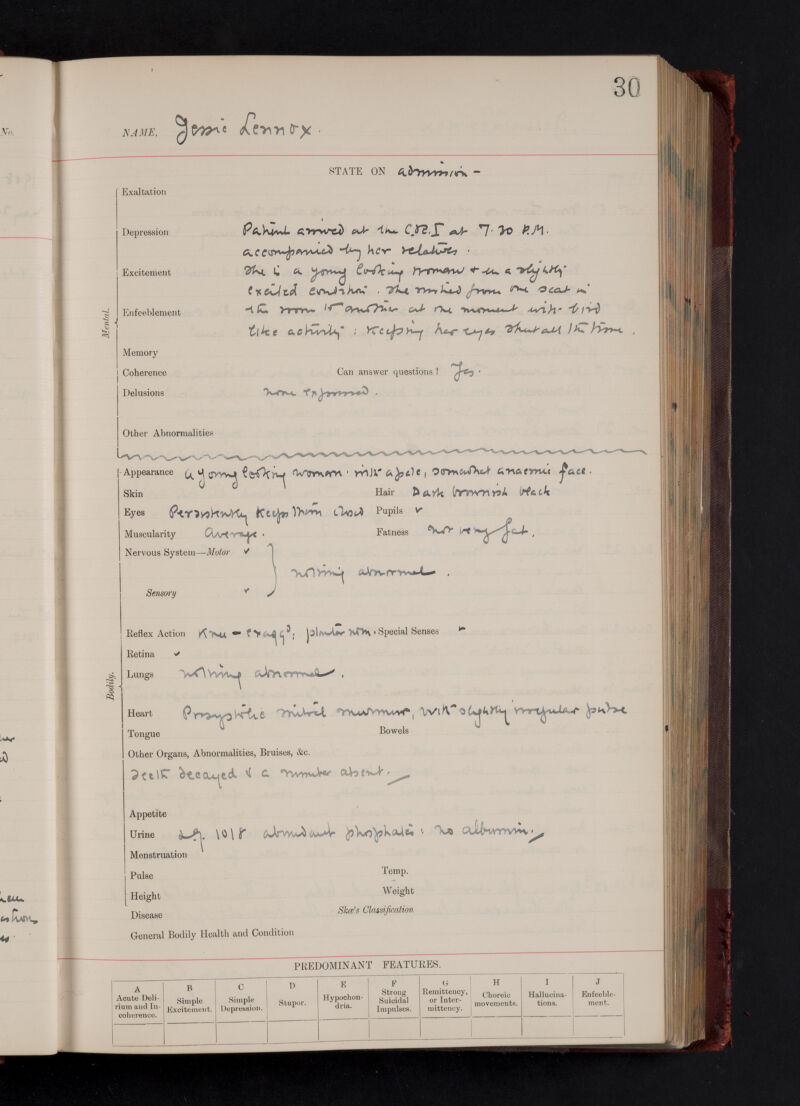 No.
30
NAME, Jessie Lennox.
STATE ON admission -
Mental.
Exaltation
Depression Patient arrived at the C.R.I at 7.30 P.M.
accompanied by her relatives.
Excitement She is a young looking woman & in a slightly
excited condition. She rushed from one seat in
Enfeeblement the room to another at one moment with bird
like activity: keeping her eyes shut all the time.
Memory
Coherence Can answer questions? Yes.
Delusions none expressed.
Other Abnormalities
Bodily.
Appearance a young looking woman. with a pale, somewhat anaemic face.
Skin Hair Dark brownish black
Eyes Persistently keeps them closed Pupils ✓
Muscularity Average. Fatness not very fat.
Nervous System—Motor ✓
nothing abnormal.
Sensory ✓
Reflex Action Knee - exagg'd; plantar norm. Special Senses
Retina ✓
Lungs nothing abnormal.
Heart Presystolic mitral murmur, with slightly irregular pulse
Tongue Bowels
Other Organs, Abnormalities, Bruises, &c.
Teeth decayed & a number absent.
Appetite
Urine 1018 abundant phosphates: no albumin.
Menstruation
Pulse Temp.
Height Weight
Disease Skae's Classification
General Bodily Health and Condition
PREDOMINANT FEATURES.
A B C D E F G H I J
Acute Delirium and Incoherence. Simple Excitement. Simple Depression. Stupor. Hypochondria. Strong Suicidal Impulses. Remittency, or Intermittency. Choreic movements. Hallucinations. Enfeeblement.